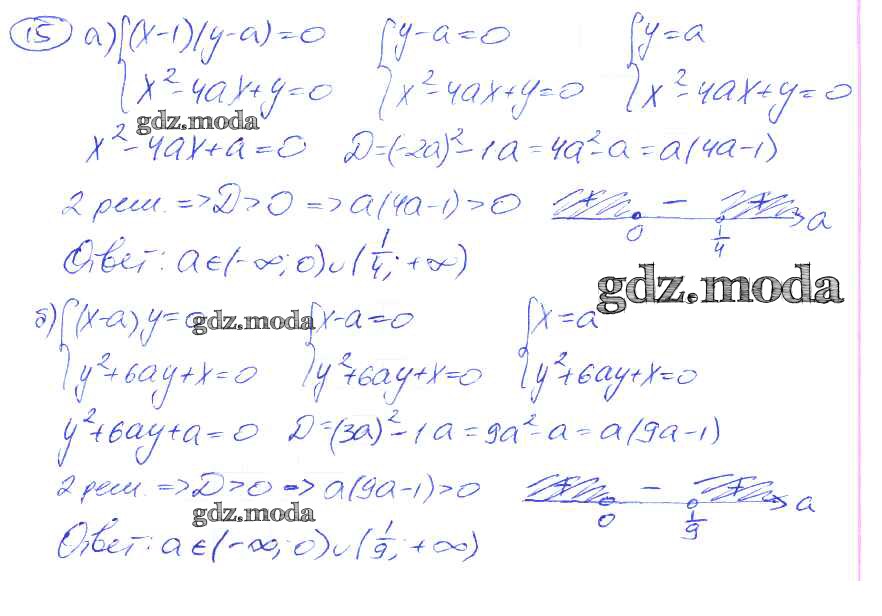 15 а) {(x-1)(y-a)=0 {y-a=0 {y=a
{x²-4ax+y=0 {x²-4ax+y=0 {x²-4ax+y=0
gdz.moda
x²-4ax+a=0 D=(-2a)²-1a=4a²-a=a(4a-1)
2 реш. =>D>0 =>a(4a-1)>0 + - + a
0 1/4
Ответ: a∈(-∞;0)∪(1/4;+∞)
gdz.moda
б) {(x-a)y=0 {x-a=0 {x=a
gdz.moda
{y²+6ay+x=0 {y²+6ay+x=0 {y²+6ay+x=0
y²+6ay+a=0 D=(3a)²-1a=9a²-a=a(9a-1)
2 реш. =>D>0 => a(9a-1)>0 + - + a
gdz.moda
0 1/9
Ответ: a∈(-∞;0)∪(1/9;+∞)